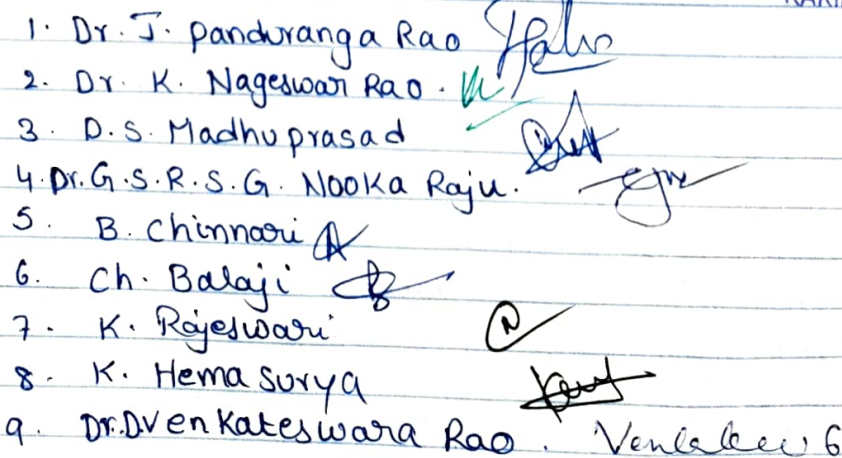 1. Dr. J. Panduranga Rao
2. Dr. K. Nageswar Rao.
3. D.S. Madhu prasad
4. Dr. G.S.R.S.G. Nooka Raju.
5. B. Chinnari
6. Ch. Balaji
7. K. Rajeswari
8. K. Hema Surya
9. Dr. D Venkateswara Rao.